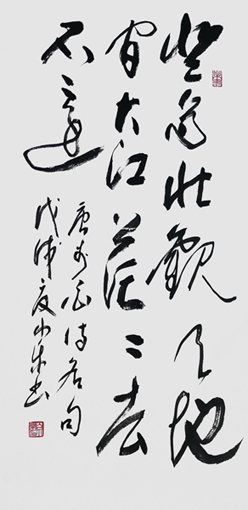 登高壮觀天地
间大江茫〻去
不還
唐李白诗名句
戊戌夏